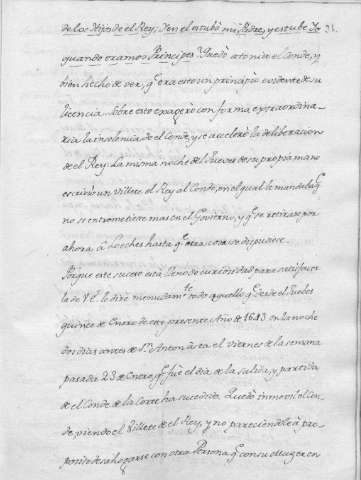 de los Hijos de el Rey; I en el estubo mi Padre, y estube Yo 21.
quando eramos Principes. Quedò atonito el Conde, y
bien hecho de ver, q̃ era esto un principio evidente de su
licencia. Sobre esto exagerò con forma extraordina-
ria la insolencia de el Conde, y se acelerò la deliberacion
de el Rey. La misma noche del Jueves de su propia mano
escrivio un Villete el Rey al Conde, en el qual le mandaba q̃
no se entrometiere mas en el Govierno, y q̃ se retirase por
ahora à Loeches hasta q̃ otra cosa se dispusiere.
Porque este suceso està lleno de curiosidad para satisfacer
la de V.E. le dirè menudam.te todo aquello q̃ desde el Jueves
quince de Enero de este presente Año de 1643 en la noche
dos dias antes de S.n Anton asta el Viernes de la semana
pasada 23 de Enero, q̃ fuè el dia de la salida, y partida
de el Conde de la Corte ha sucedido. Quedò inmovil el Con-
de viendo el Villete de el Rey, y no pareciendole à pro-
posito desahogarse con otra Persona q̃ con su Muger en